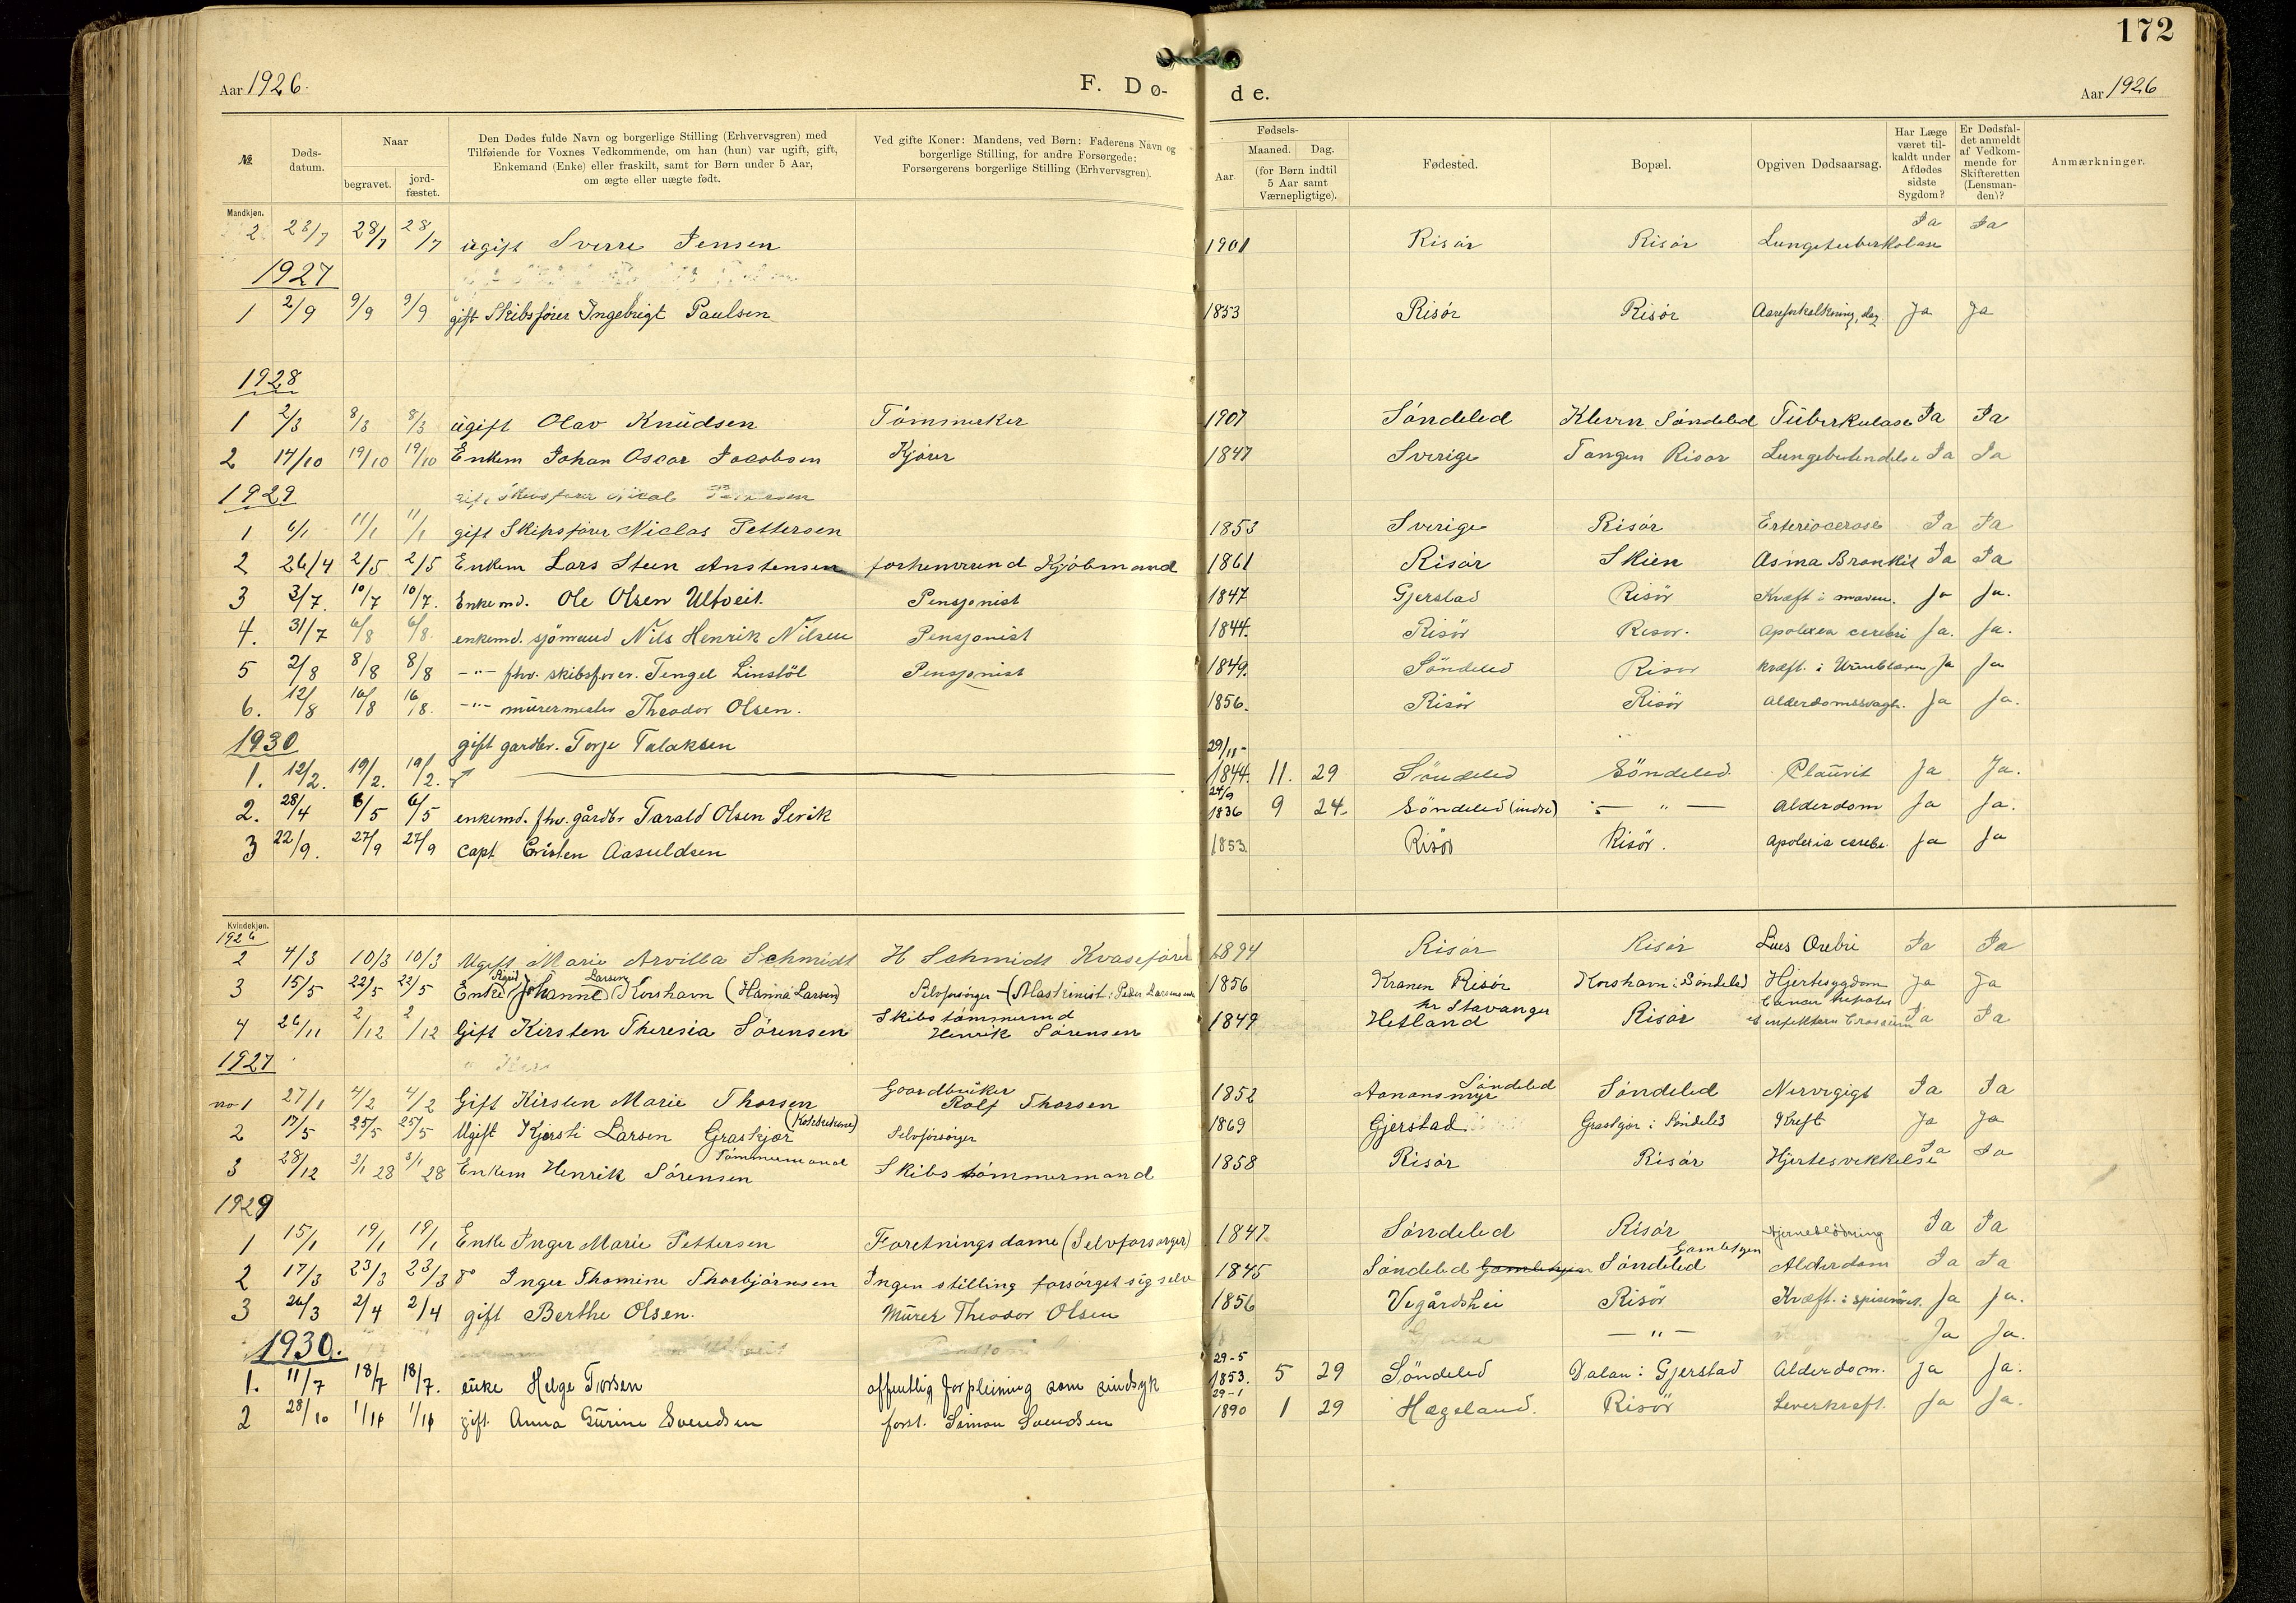 172
Aar 1926. F. Dø- de. Aar 1926
№ Døds-datum. Naar begravet. jord-fæstet. Den Dødes fulde Navn og borgerlige Stilling (Erhvervsgren) med Tilføiende for Voxnes Vedkommende, om han (hun) var ugift, gift, Enkemand (Enke) eller fraskilt, samt for Børn under 5 Aar, om ægte eller uægte født. Ved gifte Koner: Mandens, ved Børn: Faderens Navn og borgerlige Stilling, for andre Forsørgede: Forsørgerens borgerlige Stilling (Erhvervsgren). Fødsels- Aar. Maaned. Dag. (for Børn indtil 5 Aar samt Værnepligtige). Fødested. Bopæl. Opgiven Dødsaarsag. Har Læge været til-kaldt under Afdødes sidste Sygdom? Er Dødsfal-det anmeldt af Vedkom-mende for Skifteretten (Lensman-den)? Anmærkninger.
Mandkjøn.
2 23/7 28/7 28/7 ugift Sverre Jensen 1901 Risør Risør Lungetuberkolose Ja Ja
1927
1 2/9 9/9 9/9 gift Skibsfører Ingebrigt Paulsen 1853 Risör Risör Aareforkalkning, slag. Ja Ja
1928
1 2/3 8/3 8/3 ugift Olav Knudsen Tømmerker 1907 Søndeled Kleven Søndeled Tuberkulose Ja Ja
2 14/10 19/10 19/10 Enkem Johan Oscar Jacobsen Kjører 1847 Sverige Tangen Risør Lungebetendelse Ja Ja
1929
1 6/1 11/1 11/1 gift Skipsfører Niclas Pettersen 1853 Sverige Risør Erteriocerose Ja Ja
2 26/4 2/5 2/5 Enkem Lars Steen Anstensen forhenverend Kjøbmand 1861 Risør Skien Asma Bronkit Ja Ja
3 3/7. 10/7 10/7. Enkemd. Ole Olsen Ulltveit. Pensjonist 1847 Gjerstad Risör Kræft i maven. Ja Ja.
4. 31/7 6/8 6/8. enkemd. sjömand Nils Henrik Nilsen Pensjonist 1844. Risör Risor. Apolexea cerebri Ja. Ja.
5 2/8 8/8 8/8 -"- fhv. skibsfører. Tengel Linstöl Pensjonist 1849. Söndeled Risor kræft. i Urinblæren Ja Ja
6. 12/8 16/8 16/8. -"- murermester Theodor Olsen. 1856. Risör Risör Alderdomssvagh. Ja Ja.
1930 gift gardbr. Torje Talaksen 29/11-
1. 12/2. 19/2. 19/2. 1844. 11. 29 Söndeled Söndeled. Plaurit Ja Ja.
24/9
2. 28/4 6/5 6/5 enkemd. fhv. gårdbr Tarald Olsen Sevik 1836 9 24. Söndeled (indre) - " - Alderdom Ja Ja.
3 22/9. 27/9 27/9 capt Cristen Aasuldsen 1853. Risör Risör. Apolexia cerebr. Ja Ja
Kvindekjøn.
1926
2 4/3 10/3 10/3 Ugift Marie Arvilla Schmidt H Schmidt Kvasefører 1894 Risør Risør Lues Ja Ja
3 15/5 22/5 22/5 Enke Johanne Larsen Korshavn (Hanna Larsen) Selvforsörger (Maskinist: Peder Larsens enke 1856 Kranen Risör Korshavn i Söndeled Hjertesygdom Ja Ja
4 26/11 2/12 2/12 Gift Kirsten Theresia Sørensen Skibstømmermd Henrik Sørensen 1849 Hetland nr Stavanger Risør Cancer hepatis Ja Ja
1927
no 1 27/1 4/2 4/2 Gift Kirsten Marie Thorsen Gaardbruker Rolf Thorsen 1852 Aanonsmyr Søndeled Søndeled Nervegigt Ja Ja
2 17/5 25/5 25/5 Ugift Kjersti Larsen Graskjær (Kokkekone) Selvforsörger 1869 Gjerstad. Graskjær i Söndeled Kreft Ja Ja
3 28/12 3/1 28 3/1 28 Enkem Henrik Sørensen Tømmermand Skibstømmermand 1858 Risør Risør Hjertesvekkelse Ja Ja
1929
1 15/1 19/1 19/1 Enke Inger Marie Pettersen Foretningsdame (Selvforsørger) 1847. Søndeled Risør Hjerneblödning Ja Ja
2 17/3 23/3 23/3 do Inger Thomine Thorbjørnsen Ingen stilling forsørget sig selv 1845 Søndeled Søndeled Alderdom Ja Ja
3 26/3 2/4 2/4 gift Berthe Olsen. Murer Theodor Olsen 1856 Vegårdshei Risör Kræft. i spiseröret. Ja Ja.
1930. - " - Ja Ja.
29-5
1. 11/7 18/7 18/7. enke Helge Torsen offentlig forpleining som sindsyk 1853. 5 29 Söndeled Dalan i Gjerstad Alderdom. Ja Ja.
29-1
2 28/10 1/11 1/11 gift. Anna Gurine Svendsen forst. Simon Svendsen 1890 1 29 Hægeland. Risör Leverkræft. Ja Ja.